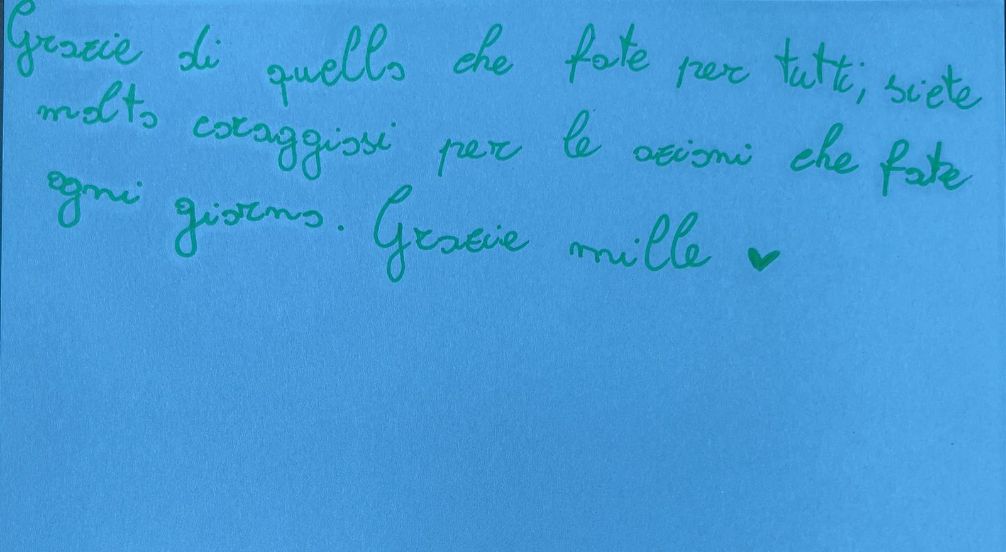 Grazie di quello che fate per tutti, siete
molto coraggiosi per le azioni che fate
ogni giorno. Grazie mille ♥